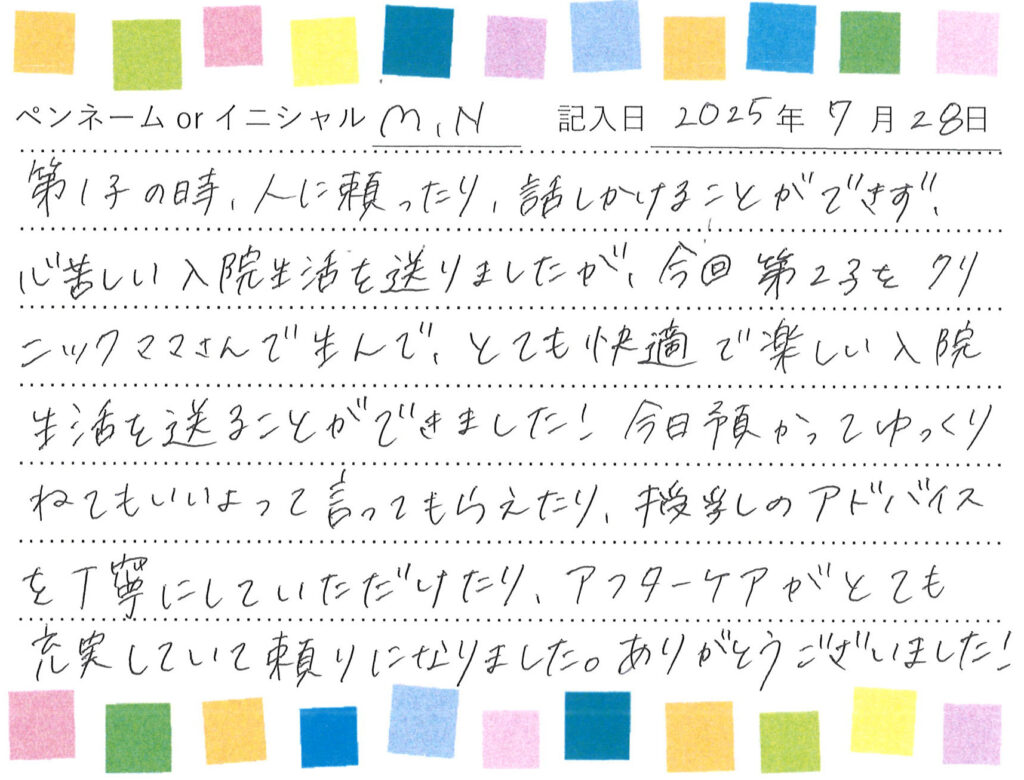 ペンネーム or イニシャル M.N 記入日 2025年 7月 28日
第1子の時、人に頼ったり、話しかけることができず、
心苦しい入院生活を送りましたが、今回第2子をクリ
ニックママさんで生んで、とても快適で楽しい入院
生活を送ることができました！今日預かってゆっくり
ねてもいいよって言ってもらえたり、授乳しのアドバイス
を丁寧にしていただけたり、アフターケアがとても
充実していて頼りになりました。ありがとうございました！